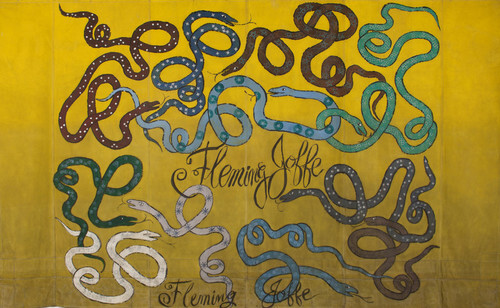 Fleming Joffe
Fleming Joffe